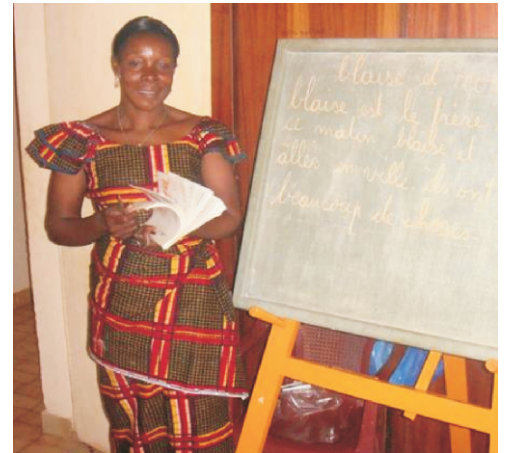 blaise et
blaise est le frère
ce matin blaise et
allés en ville. ils ont
beaucoup de choses.